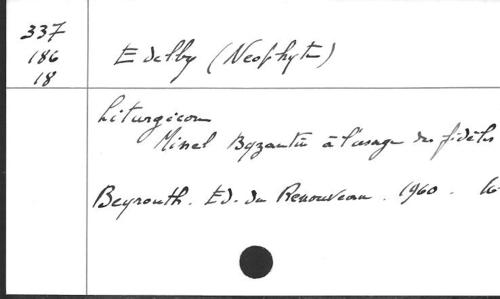 337
186
18
Edelby (Neophyte)
Liturgicon
Missel Byzantin à l'usage des fidèles
Beyrouth. Ed. du Renouveau. 1960.